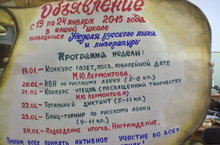 Объявление
с 19 по 24 января 2015 года
в нашей школе
проводится Неделя русского языка
и литературы
Программа недели:
19.01 - Конкурс газет, посв. юбилейной дате
М.Ю. Лермонтова.
20.01 - КВН по русскому языку (5-6 кл.)
21.01 - Конкурс чтецов (посвященный творчеству
М.Ю. Лермонтова)
22.01 - Тотальный диктант (5-11 кл.)
23.01 - Блиц-турнир по русскому языку
(9-11 кл.)
24.01 - Подведение итогов. Награждение.
Просим всех принять активное участие во всех